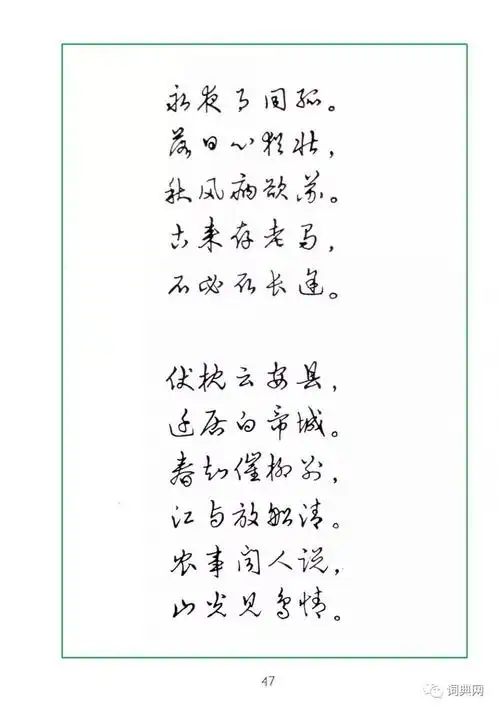 永夜月同孤。
落日心犹壮，
秋风病欲苏。
古来存老马，
不必取长途。
伏枕云安县，
迁居白帝城。
春知催柳别，
江与放船清。
农事闻人说，
山光见鸟情。
47
词典网